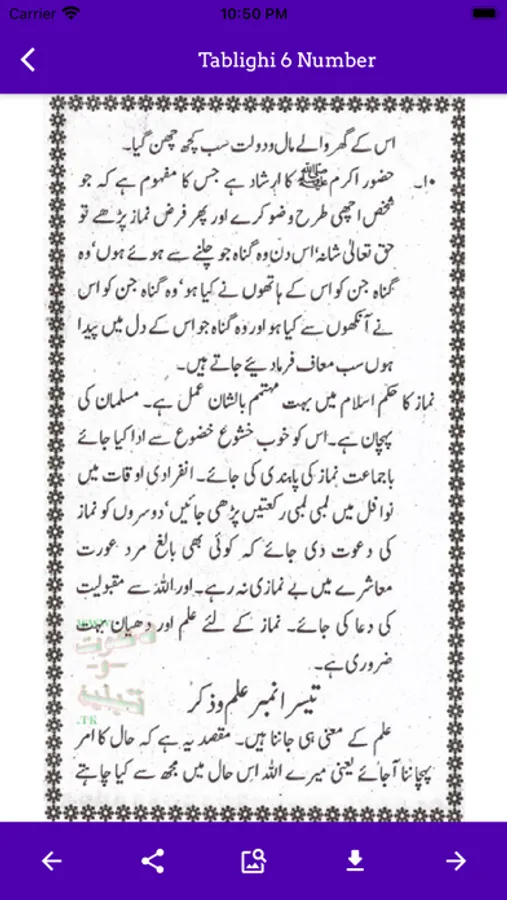 Carrier 10:50 PM
Tablighi 6 Number
اس کے گھر والے مال و دولت سب کچھ چھن گیا۔
۱۰۔ حضور اکرم ﷺ کا ارشاد ہے جس کا مفہوم ہے کہ جو
شخص اچھی طرح وضو کرے اور پھر فرض نماز پڑھے تو
حق تعالیٰ شانہٗ اس دن وہ گناہ جو چلنے سے ہوئے ہوں، وہ
گناہ جن کو اس کے ہاتھوں نے کیا ہو، وہ گناہ جن کو اس
نے آنکھوں سے کیا ہو اور وہ گناہ جو اس کے دل میں پیدا
ہوں سب معاف فرما دیئے جاتے ہیں۔
نماز کا حکم اسلام میں بہت مہتمم بالشان عمل ہے۔ مسلمان کی
پہچان ہے۔ اس کو خوب خشوع خضوع سے ادا کیا جائے
باجماعت نماز کی پابندی کی جائے۔ انفرادی اوقات میں
نوافل میں لمبی لمبی رکعتیں پڑھی جائیں، دوسروں کو نماز
کی دعوت دی جائے کہ کوئی بھی بالغ مرد عورت
معاشرے میں بے نمازی نہ رہے۔ اور اللہ سے مقبولیت
کی دعا کی جائے۔ نماز کے لئے علم اور دھیان بہت
ضروری ہے۔
تیسرا نمبر علم و ذکر
علم کے معنی ہی جاننا ہیں۔ مقصد یہ ہے کہ حال کا امر
پہچاننا آ جائے یعنی میرے اللہ اس حال میں مجھ سے کیا چاہتے
.TK